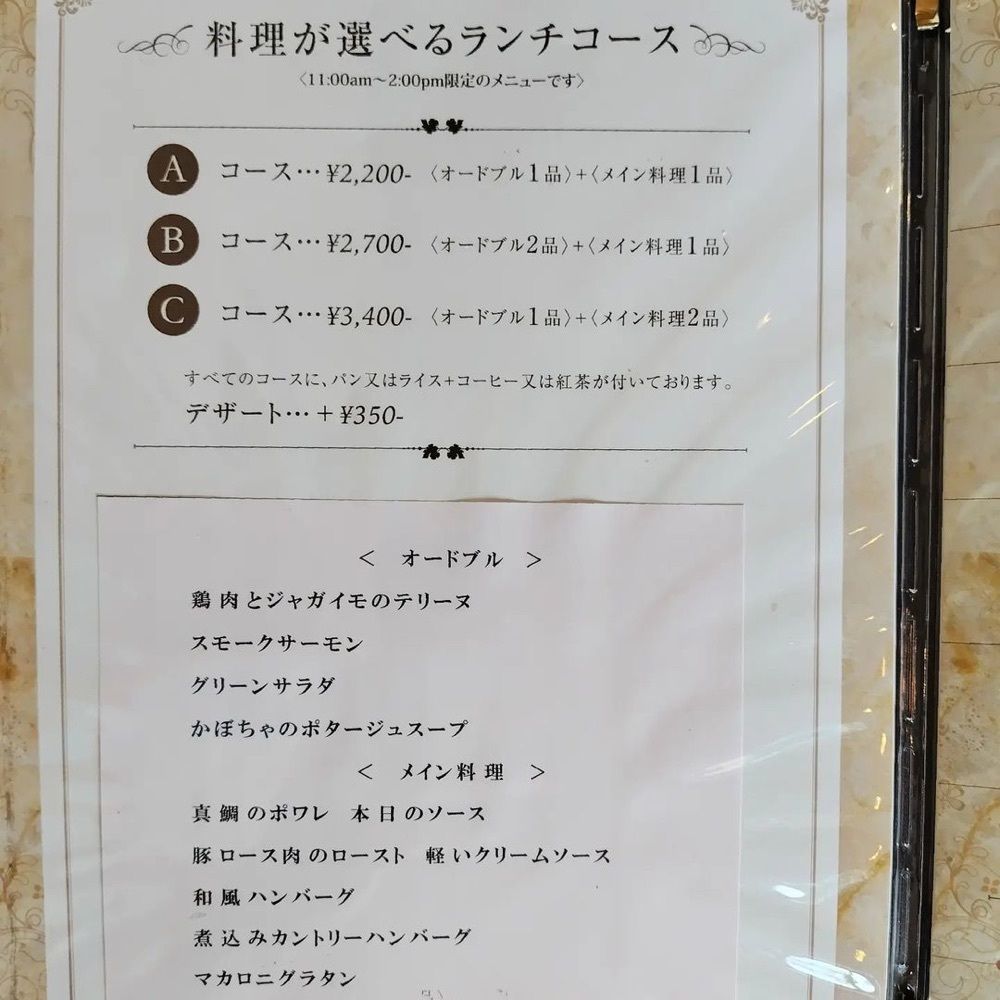 料理が選べるランチコース
〈11:00am～2:00pm限定のメニューです〉
A コース…¥2,200- 〈オードブル1品〉+〈メイン料理1品〉
B コース…¥2,700- 〈オードブル2品〉+〈メイン料理1品〉
C コース…¥3,400- 〈オードブル1品〉+〈メイン料理2品〉
すべてのコースに、パン又はライス+コーヒー又は紅茶が付いております。
デザート…+¥350-
＜ オードブル ＞
鶏肉とジャガイモのテリーヌ
スモークサーモン
グリーンサラダ
かぼちゃのポタージュスープ
＜ メイン料理 ＞
真鯛のポワレ 本日のソース
豚ロース肉のロースト 軽いクリームソース
和風ハンバーグ
煮込みカントリーハンバーグ
マカロニグラタン